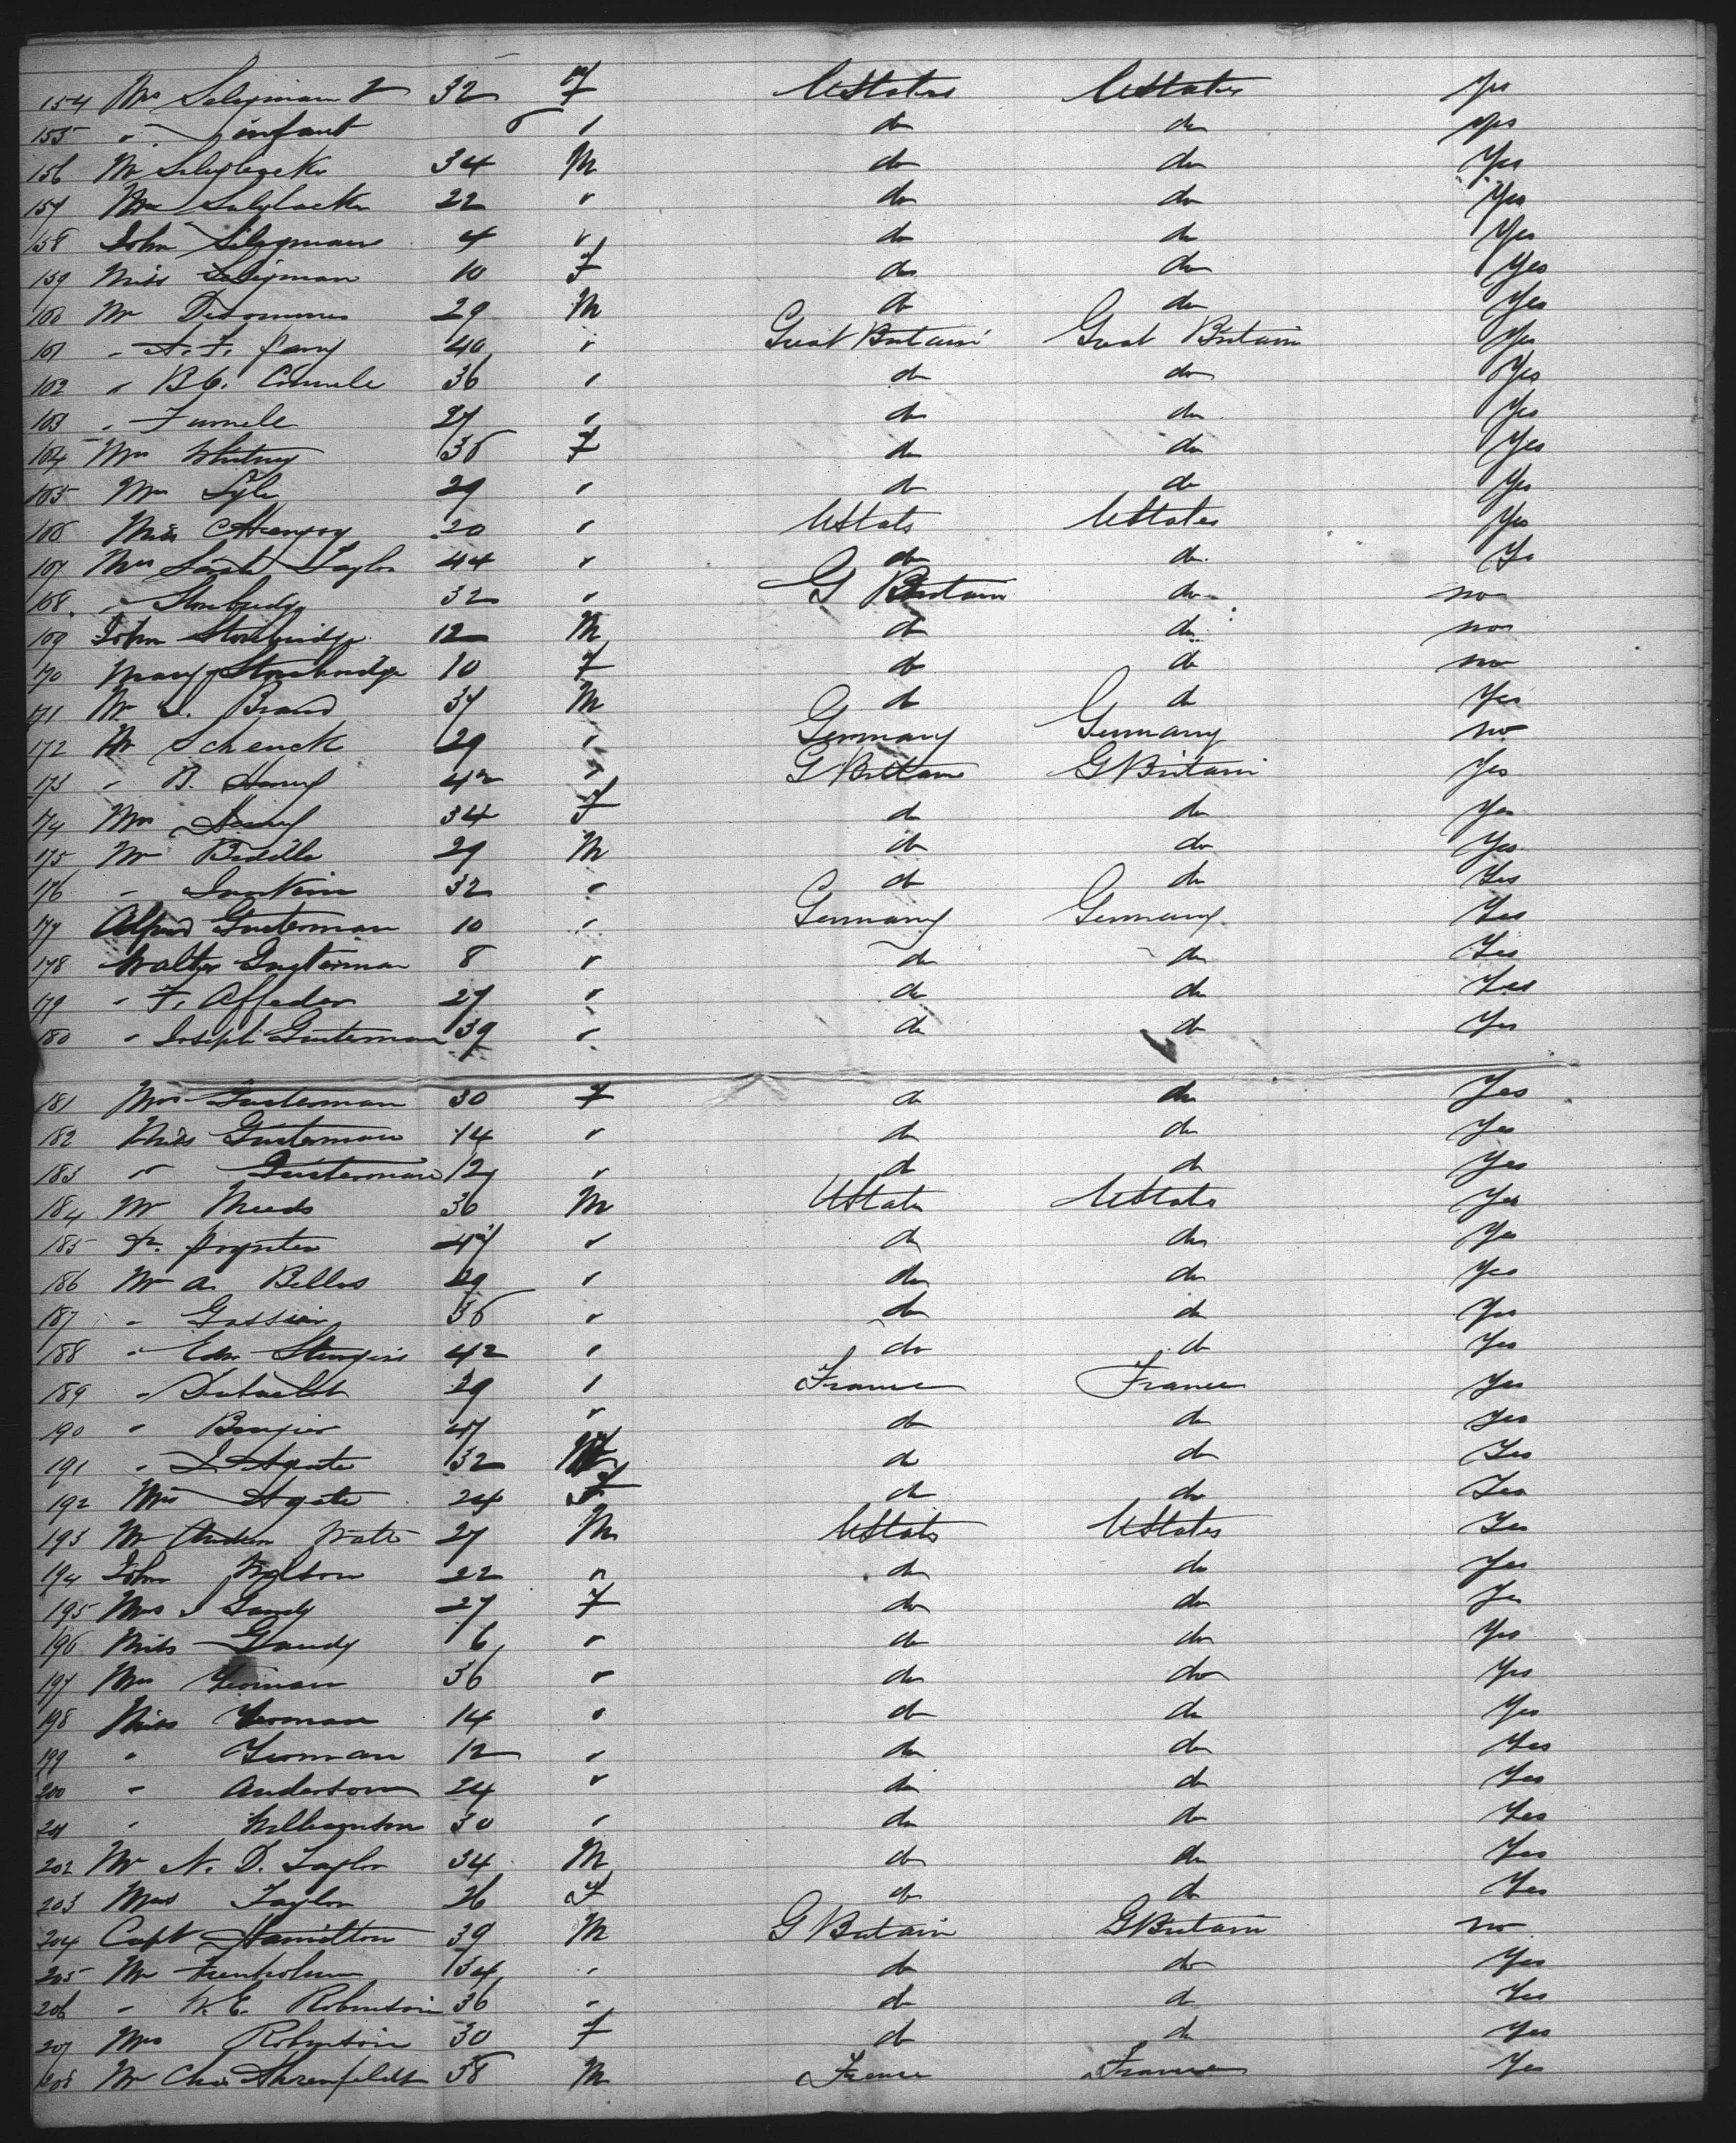 154 Mrs Seligman & 32 F UStates UStates Yes
155 " infant " do do Yes
156 Mr 34 M do do Yes
157 Mrs 22 " do do Yes
158 John Seligman 4 " do do Yes
159 Miss Seligman 10 F do do Yes
160 Mr 29 M do do Yes
161 " A. F. 40 " Great Britain Great Britain Yes
162 " B C. 36 " do do Yes
163 " 27 " do do Yes
164 Mrs Whitney 35 F do do Yes
165 Mrs Lyle 29 " do do Yes
166 Miss 20 " UStats UStates Yes
167 Mrs Sarah Taylor 44 " do do Ys
168 " Stonbridge 32 " G Britain do no
169 John Stonbridge 12 M do do no
170 Mary Stonbridge 10 F do do no
171 Mr J. Brand 37 M do do Yes
172 Mr Schenck 29 " Germany Germany no
173 " B. Henry 42 " G Britain G Britain Yes
174 Mrs Henry 34 F do do Yes
175 Mr 29 M do do Yes
176 " 32 " do do Yes
177 Alfred Guterman 10 " Germany Germany Yes
178 Walter Guterman 8 " do do Yes
179 " F. Affeder 27 " do do Yes
180 " Joseph Guterman 39 " do do Yes
181 Mrs Guterman 30 F do do Yes
182 Miss Guterman 14 " do do Yes
183 " Guterman 12 " do do Yes
184 Mr Meeds 36 M UStates UStates Yes
185 Dr. Poynter 47 " do do Yes
186 Mr A. Bellos 29 " do do Yes
187 " Gassier 35 " do do Yes
188 " Edw. Sturgis 42 " do do Yes
189 " 29 " France France Yes
190 " 47 " do do Yes
191 " J Agate 32 M do do Yes
192 Mrs Agate 24 F do do Yes
193 Mr Andrew Watt 27 M UStats UStates Yes
194 John Wilson 22 " do do Yes
195 Mrs J Gandy 27 F do do Yes
196 Miss Gandy 6 " do do Yes
197 Mrs Yeoman 36 " do do Yes
198 Miss Yeoman 14 " do do Yes
199 " Yeoman 12 " do do Yes
200 " Anderson 24 " do do Yes
201 " Williamson 30 " do do Yes
202 Mr N. D. Taylor 34 M do do Yes
203 Mrs Taylor 26 F do do Yes
204 Capt Hamilton 39 M G Britain G Britain no
205 Mr Trenholm 34 " do do Yes
206 " W. E. Robertson 36 " do do Yes
207 Mrs Robertson 30 F do do Yes
208 Mr Chas Ahrenfeldt 38 M France France Yes